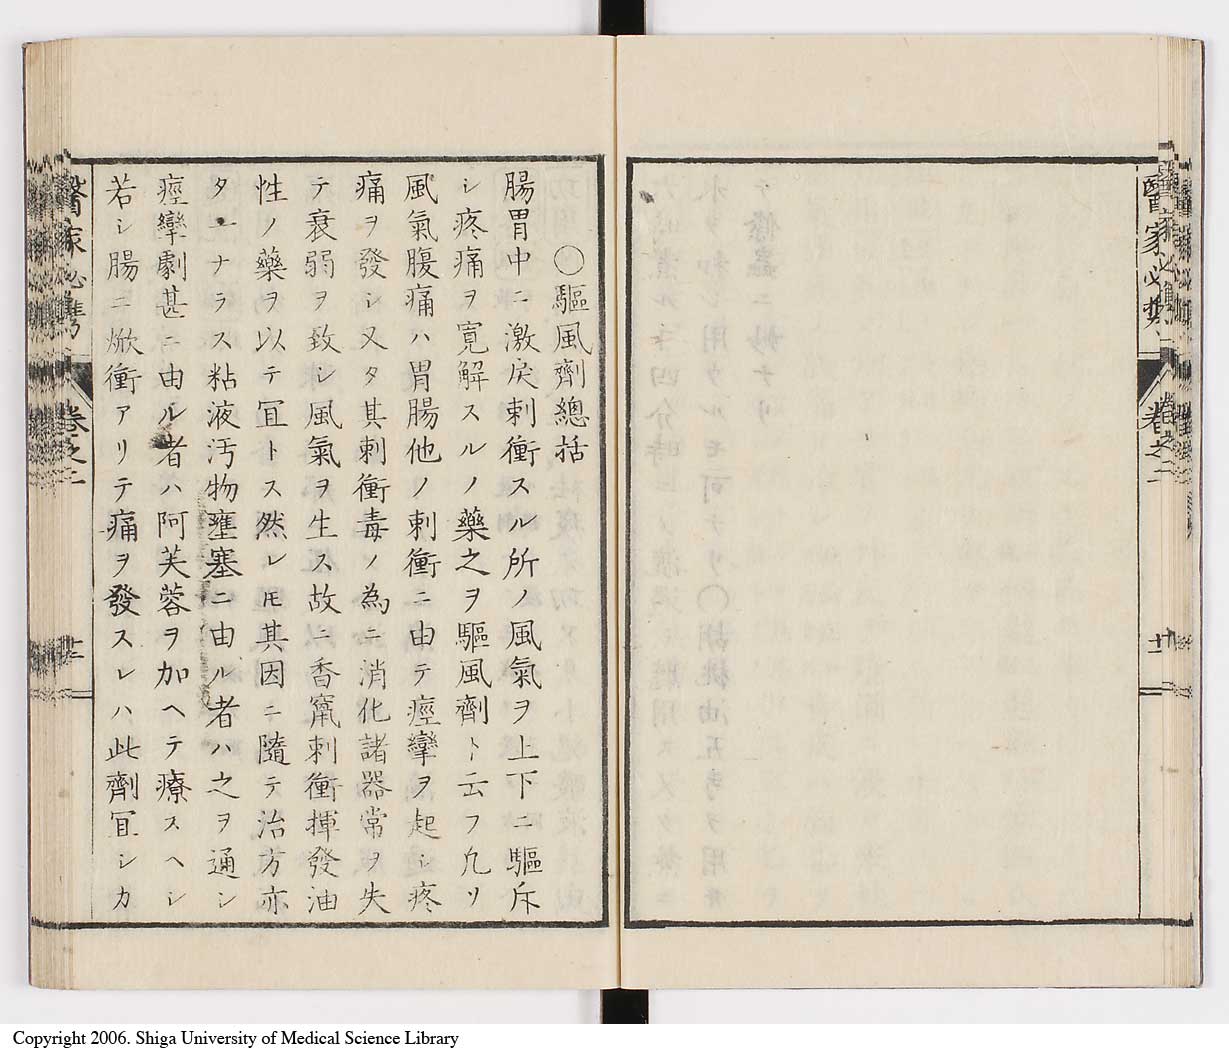 醫家必携
卷之二
十一
〇驅風劑總括
腸胃中ニ激戻刺衝スル所ノ風氣ヲ上下ニ驅斥
シ疼痛ヲ寛解スルノ藥之ヲ驅風劑ト云フ凢ソ
風氣腹痛ハ胃腸他ノ刺衝ニ由テ痙攣ヲ起シ疼
痛ヲ發シ又タ其刺衝毒ノ為ニ消化諸器常ヲ失
テ衰弱ヲ致シ風氣ヲ生ス故ニ香竄刺衝揮發油
性ノ藥ヲ以テ冝トス然レ𪜈其因ニ隨テ治方亦
タ一ナラス粘液汚物壅塞ニ由ル者ハ之ヲ通シ
痙攣劇甚ニ由ル者ハ阿芙蓉ヲ加ヘテ療スヘシ
若シ腸ニ焮衝アリテ痛ヲ發スレハ此劑冝シカ
醫家必携
卷之二
十二
Copyright 2006. Shiga University of Medical Science Library